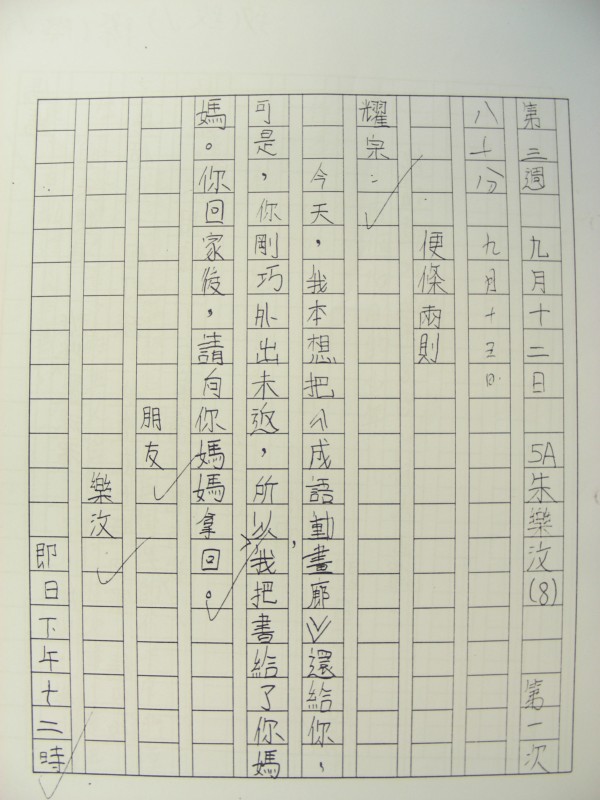 第三週 九月十二日 5A朱樂汶(8) 第一次
八十分 九月十三日
便條兩則
耀宗：
今天，我本想把《成語動畫廊》還給你，
可是，你剛巧外出未返，所以我把書給了你媽
媽。你回家後，請向你媽媽拿回。
朋友
樂汶
即日下午十二時